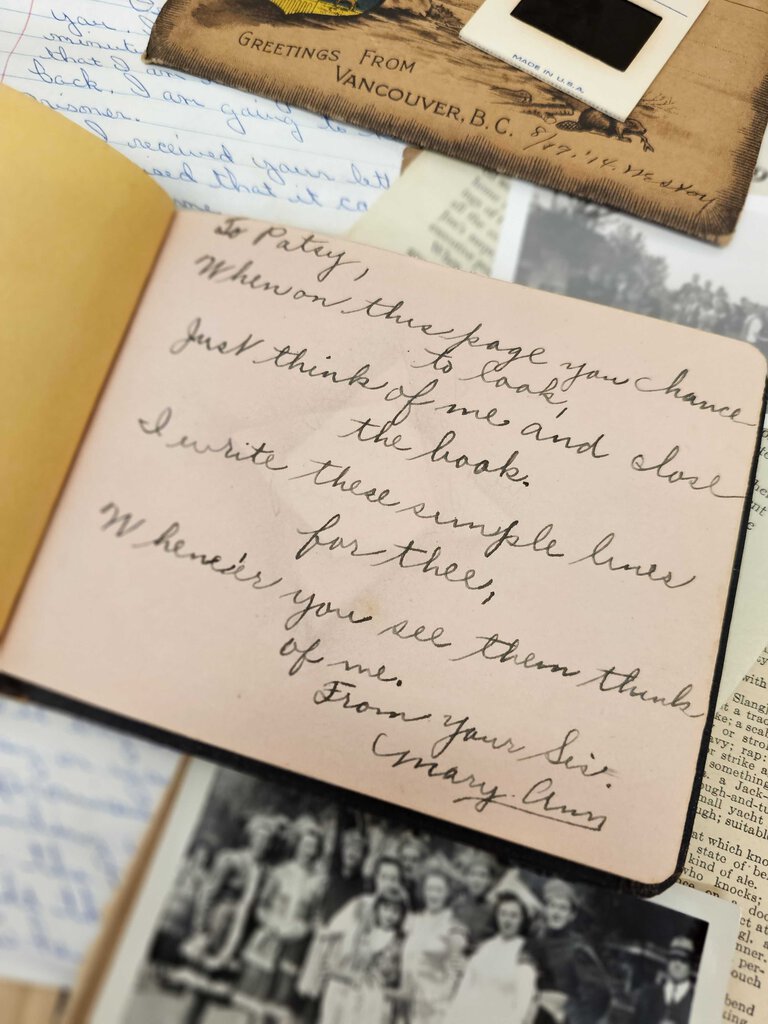 you.
minute
that I am
back, I am going to
prisoner.
I received your lett
that it ca
me
GREETINGS FROM
VANCOUVER, B.C.
8/17.'14.
MADE IN U.S.A.
To Patsy,
When on this page you chance
to look,
Just think of me and close
the book.
I write these simple lines
for thee,
Whene'er you see them think
of me.
From your Sis.
Mary Ann
with
Slang
t a trac
ke; a scab
or stro
avy; rap:
r strike a
something
. a Jack-
ough-and-tu
mall yacht
gh; suitabl
at which kno
state of be
kind of ale.
who knocks;
on a doo
ct at
g]. a
nner.
per-
ouch
bend
king